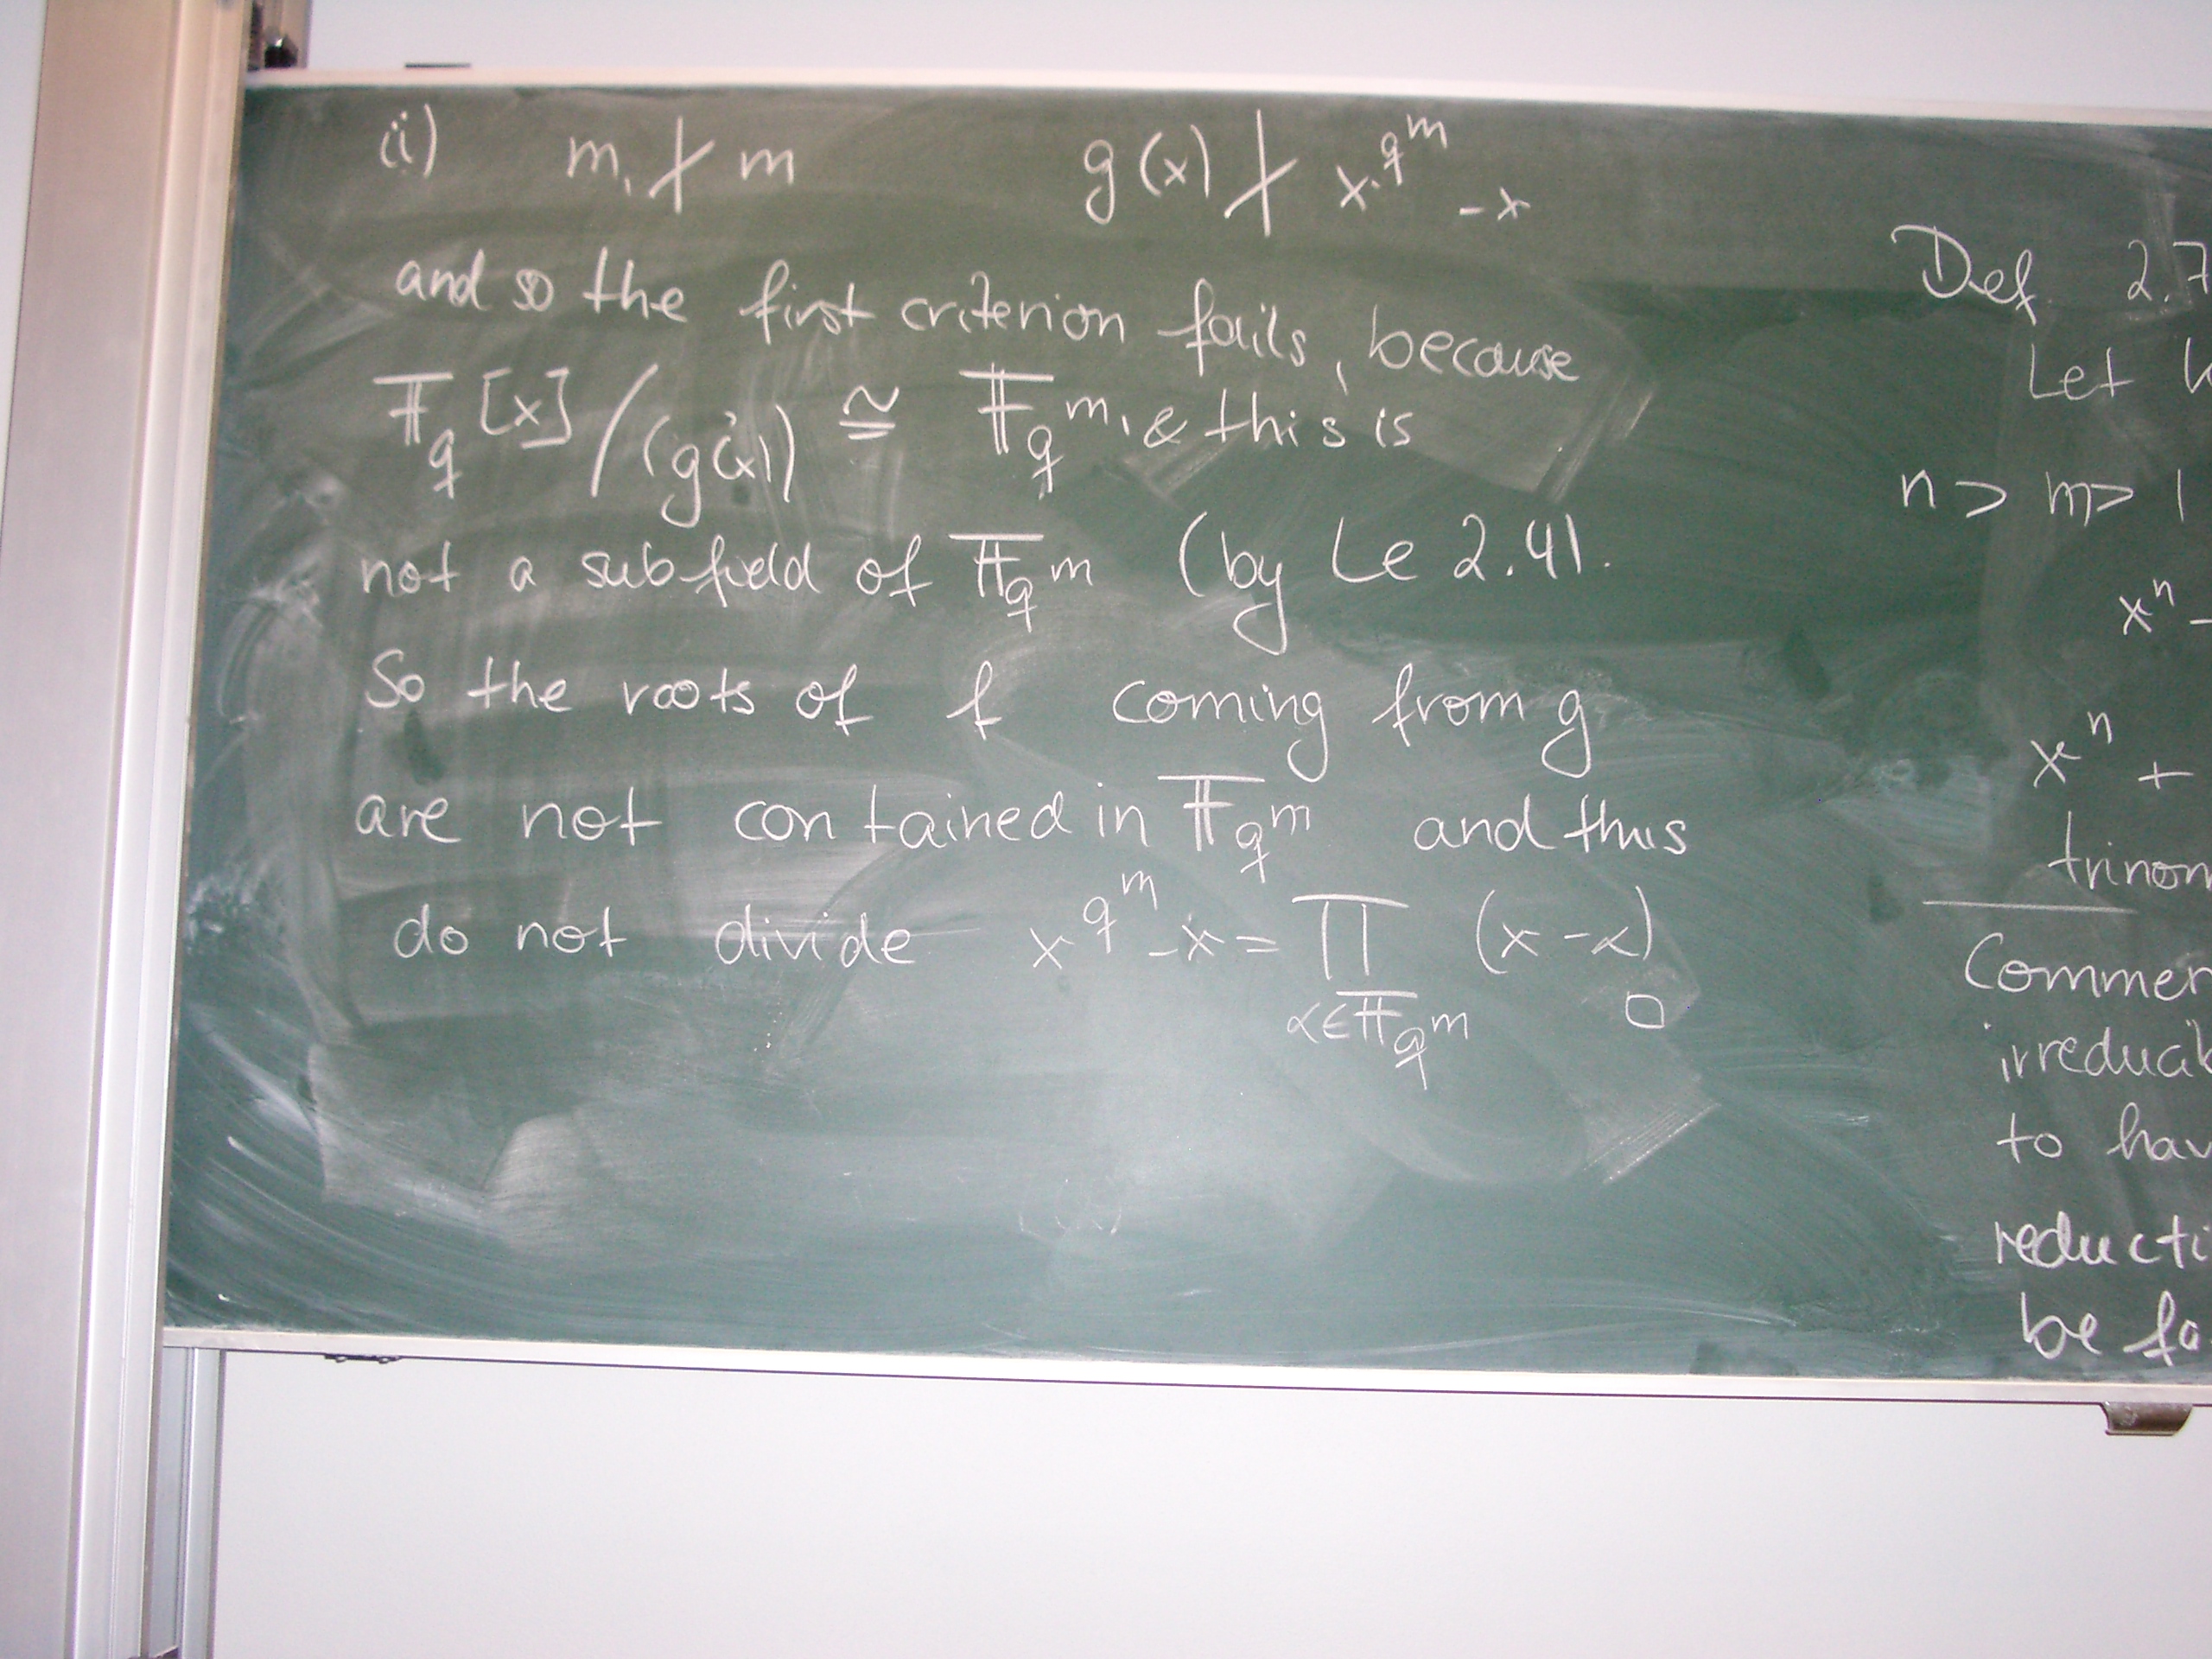 ii) m₁ ∤ m g(x) ∤ x^{q^m} - x
and so the first criterion fails, because
𝔽_q[x]/(g(x)) ≅ 𝔽_{q^{m₁}} & this is
not a subfield of 𝔽_{q^m} (by Le 2.4).
So the roots of f coming from g
are not contained in 𝔽_{q^m} and thus
do not divide x^{q^m} - x = ∏ (x - α)
α∈𝔽_{q^m} □
Def 2.7
Let
n > m > 1
x^n -
x^n +
trinom
Commen
irreducib
to hav
reducti
be fa